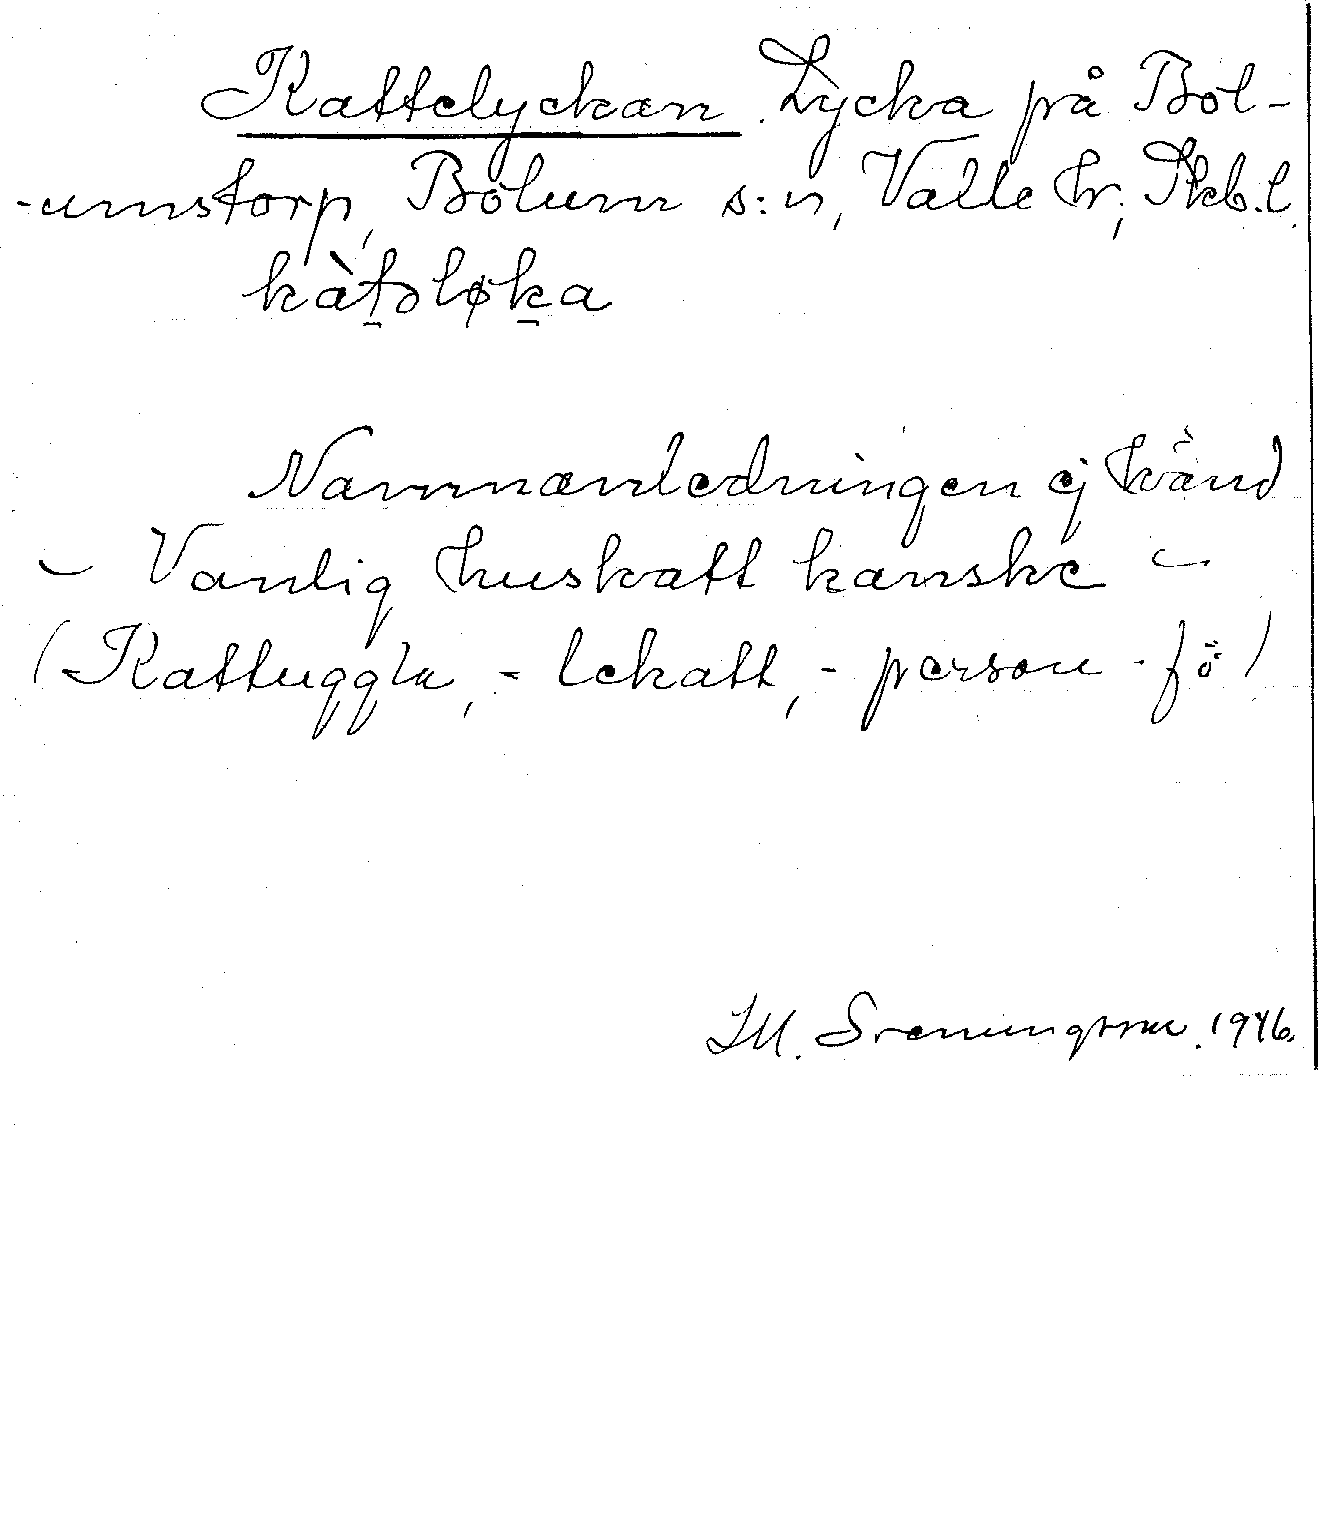 Kattelyckan. Lycka på Bol-
-umstorp, Bolum s:n, Valle hr, Skb.l.
kàt̠əløk̠a
Namnanledningen ej känd
– Vanlig huskatt kanske –
(Kattuggla, - lekatt, - person - fö)
1946.